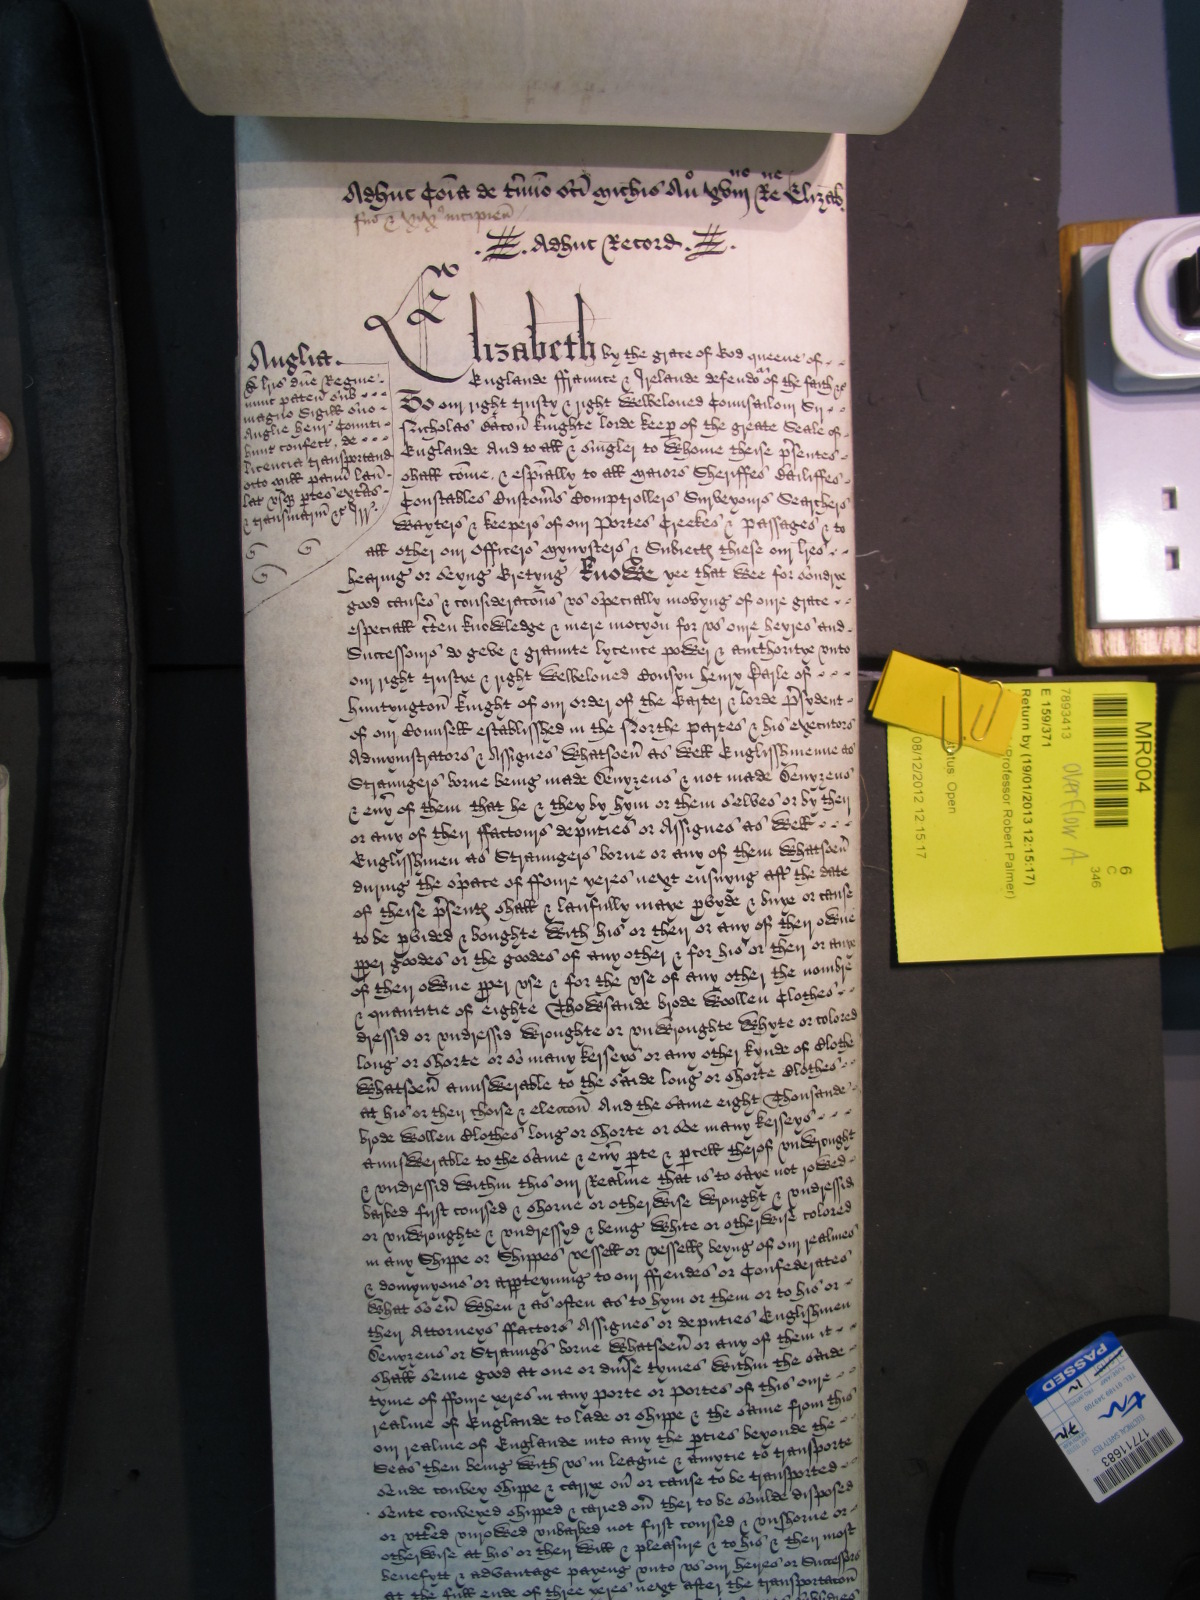 Adhuc Coia de tmino sci michis Ao xviij Re Elizab
fine & xixo incipien
Adhuc Record
Anglia
lris dne Regine
nunc paten sub
magno Sigill suo
Anglie henr Comiti
hunt confect de
licencia transportand
octo mill pann lan
lat usq ptes extas
& transmarin &c
Elizabeth by the grace of God queene of
Englande ffraunce & Irelande defendor of the faith &c
To our right trusty & right Welbeloved Counsailour Sir
Nicholas Bacon knighte lorde keep of the greate Seale of
Englande And to all & singler to Whome theise psentes
shall come & espially to all maiors Sheriffes Bailiffes
Constables Customs Comptrollers Surveyours Searchers
Wayters & keepers of our Portes Creekes & passages & to
all other our Officers mynysters & Subiects thiese our lres
hearing or seyng Gretyng Knowe yee that Wee for sondrye
good causes & consideracons us specially movyng of oure grace
especiall cten knowledge & mere mocyon for us oure heyres and
Successours do geve & graunte lycence power & aucthoritye unto
our right trustye & right Welbeloved Cousyn henry Earle of
Huntyngton knight of our order of the Garter & lorde psydent
of our Counsell established in the Northe partes & his executors
Admynistrators & Assignes Whatsoev as Well Englisshmenne as
Straungers borne being made Denyzens & not made Denyzens
& evy of them that he & they by hym or them selves or by their
or any of their ffactours deputies or Assignes as Well
Englisshmen as Straungers borne or any of them Whatsoev
during the space of ffoure yeres next ensuyng aft the date
of theise psents shall & laufully maye pvyde & buye or cause
to be pvided & boughte With his or their or any of their owne
pper goodes or the goodes of any other & for his or their or anye
of their owne pper use & for the use of any other the nombre
& quantitie of eighte Thowsande brode Woollen Clothes
dressid or undressid Wroughte or unWroughte Whyte or colored
long or shorte or so many kerseys or any other kynde of Clothe
Whatsoev aunswerable to the saide long or shorte Clothes
at his or their choise & eleccon And the same eight Thousande
brode Wollen Clothes long or shorte or soe many kerseys
aunswerable to the same & evy pte & pcell therof unWrought
& undressid Within this our Realme that is to saye not rowed
barbed first coursed & shorne or otherWise Wrought & undressid
or unWroughte & undressyd & being White or otherWise colored
in any Shippe or Shippes vessell or vessells beyng of our realmes
& domynyons or apperteynnig to our ffrendes or Confederates
What so ev When & as often as to hym or them or to his or
their Attorneys ffactors Assignes or deputies Englishmen
Denyzens or Straungs borne Whatsoev or any of them it
shall seme good at one or divse tymes Within the saide
tyme of ffoure yeres in any porte or portes of this oure
realme of Englande to lade or shippe & the same from this
our realme of Englande into any the pties beyonde the
Seas then being With us in league & amytie to transporte
sende convey shippe & carrye ov or cause to be transported
sente conveyed shipped & caried ov ther to be soulde disposed
or uttred unrowed unbarbed not first coursed & unshorne or
otherwise at his or their Will & pleasure & to his & their most
benefytt & advantage payeng unto us our heires or Successors
at the full ende of three yeres next after the transportacon
MR004
7893413
E 159/371
Return by (19/01/2013 12:15:17)
(Professor Robert Palmer)
Status: Open
08/12/2012 12:15:17
overflow A
6
C
346
PASSED
17711683